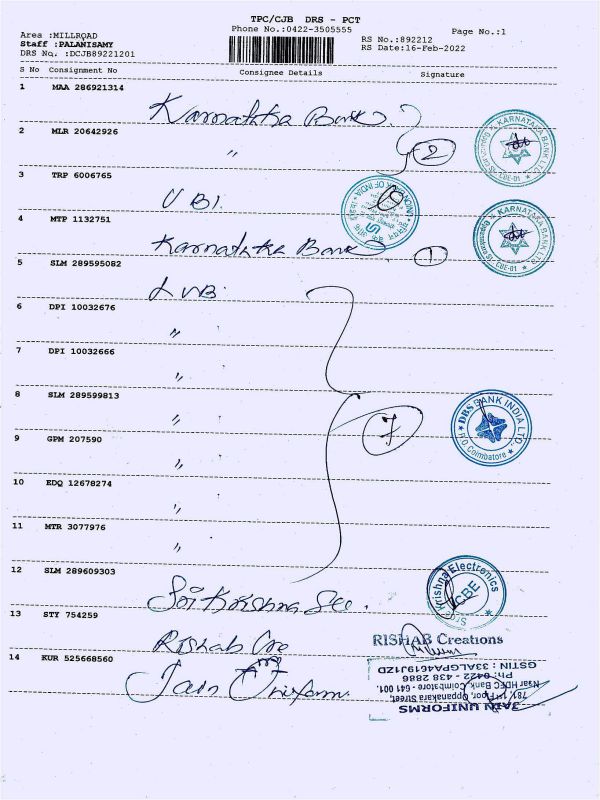 TPC/CJB DRS - PCT
Area :MILLROAD
Phone No.:0422-3505555
Page No.:1
Staff :PALANISAMY
RS No.:892212
DRS No. :DCJB89221201
RS Date:16-Feb-2022
S No Consignment No Consignee Details Signature
1 MAA 286921314
Karnataka Bank
2 MLR 20642926
" 2
KARNATAKA BANK LTD CBE-01
3 TRP 6006765
UBI.
UNION BANK OF INDIA
4 MTP 1132751
Karnataka Bank 1
KARNATAKA BANK LTD CBE-01
5 SLM 289595082
LVB
6 DPI 10032676
"
7 DPI 10032666
"
8 SLM 289599813
" 7
DBS BANK INDIA LTD
R.O. Coimbatore
9 GPM 207590
"
10 EDQ 12678274
"
11 MTR 3077976
"
12 SLM 289609303
Sri Krishna
Krishna Electronics
CBE
13 STY 754259
Rishab Cre
RISHAB Creations
14 KUR 525668560
Jain Uniform
JAIN UNIFORMS
78/, 1st Floor, Oppanakara Street,
Near HDFC Bank, Coimbatore - 641 001.
Ph: 0422 - 438 2886
GSTIN : 33ALGPA64619J1ZD